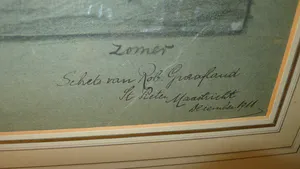 Zomer
Schets van Rob. Graafland
St Pieter Maastricht.
December 1911